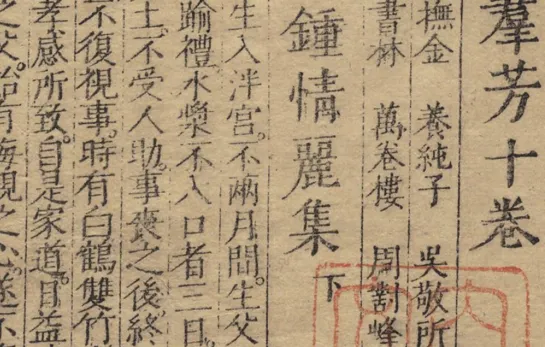 羣芳十卷
撫金　養純子　吳敬所
書林　萬卷樓　周對峰
鍾情麗集　下
生入泮宫。不兩月間。生父
踰禮水漿不入口者三日。
士。不受人助。事喪之後。終
不復視事。時有白鶴雙竹
孝感所致。自是家道。日益